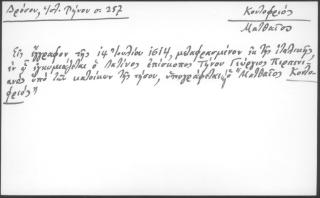 Δρόσου, Ἱστ. Τήνου σ. 257
Κοντοφριός
Ματθαῖος
Εἰς ἔγγραφον τῆς 14 Ἰουλίου 1614, μεταφρασμένον ἐκ τῆς Ἰταλικῆς,
ἐν ᾧ ἐγκωμιάζεται ὁ Λατῖνος ἐπίσκοπος Τήνου Γεώργιος Περπινι-
ανὸς ὑπὸ τῶν κατοίκων τῆς νήσου, ὑπογράφεται ὁ "Ματθαῖος Κοντο-
φριός"